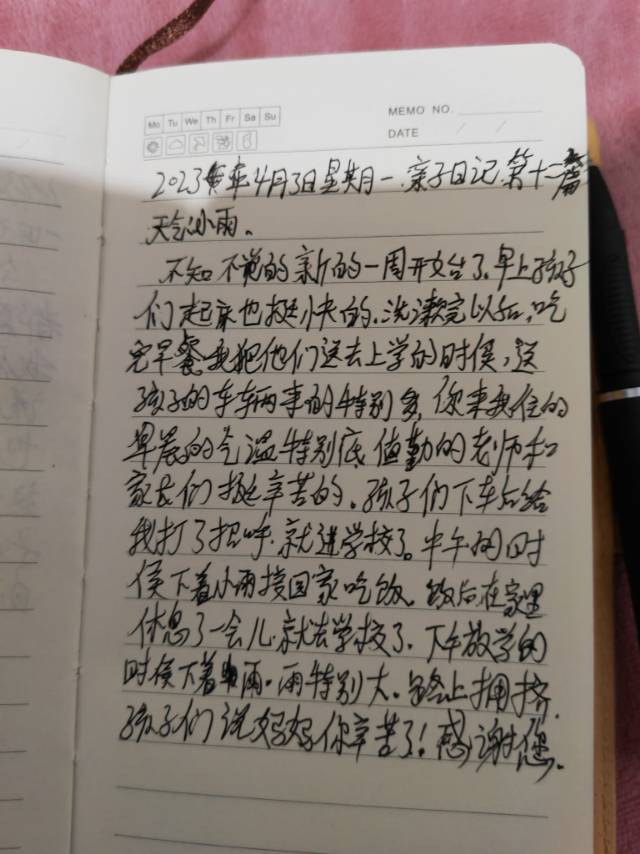 Mo Tu We Th Fr Sa Su
MEMO NO.
DATE / /
2023年4月3日星期一.亲子日记.第十二篇
天气小雨。
不知不觉的新的一周开始了.早上孩子
们起床也挺快的.洗漱完以后,吃
完早餐我把他们送去上学的时候,送
孩子的车辆来的特别多,你来我往的
早晨的气温特别底,值勤的老师和
家长们挺辛苦的。孩子们下车后给
我打了招呼.就进学校了。中午的时
侯下着小雨接回家吃饭。饭后在家里
休息了一会儿.就去学校了.下午放学的
时侯下着雨.雨特别大。路上拥挤.
孩子们说妈妈你辛苦了!感谢您.